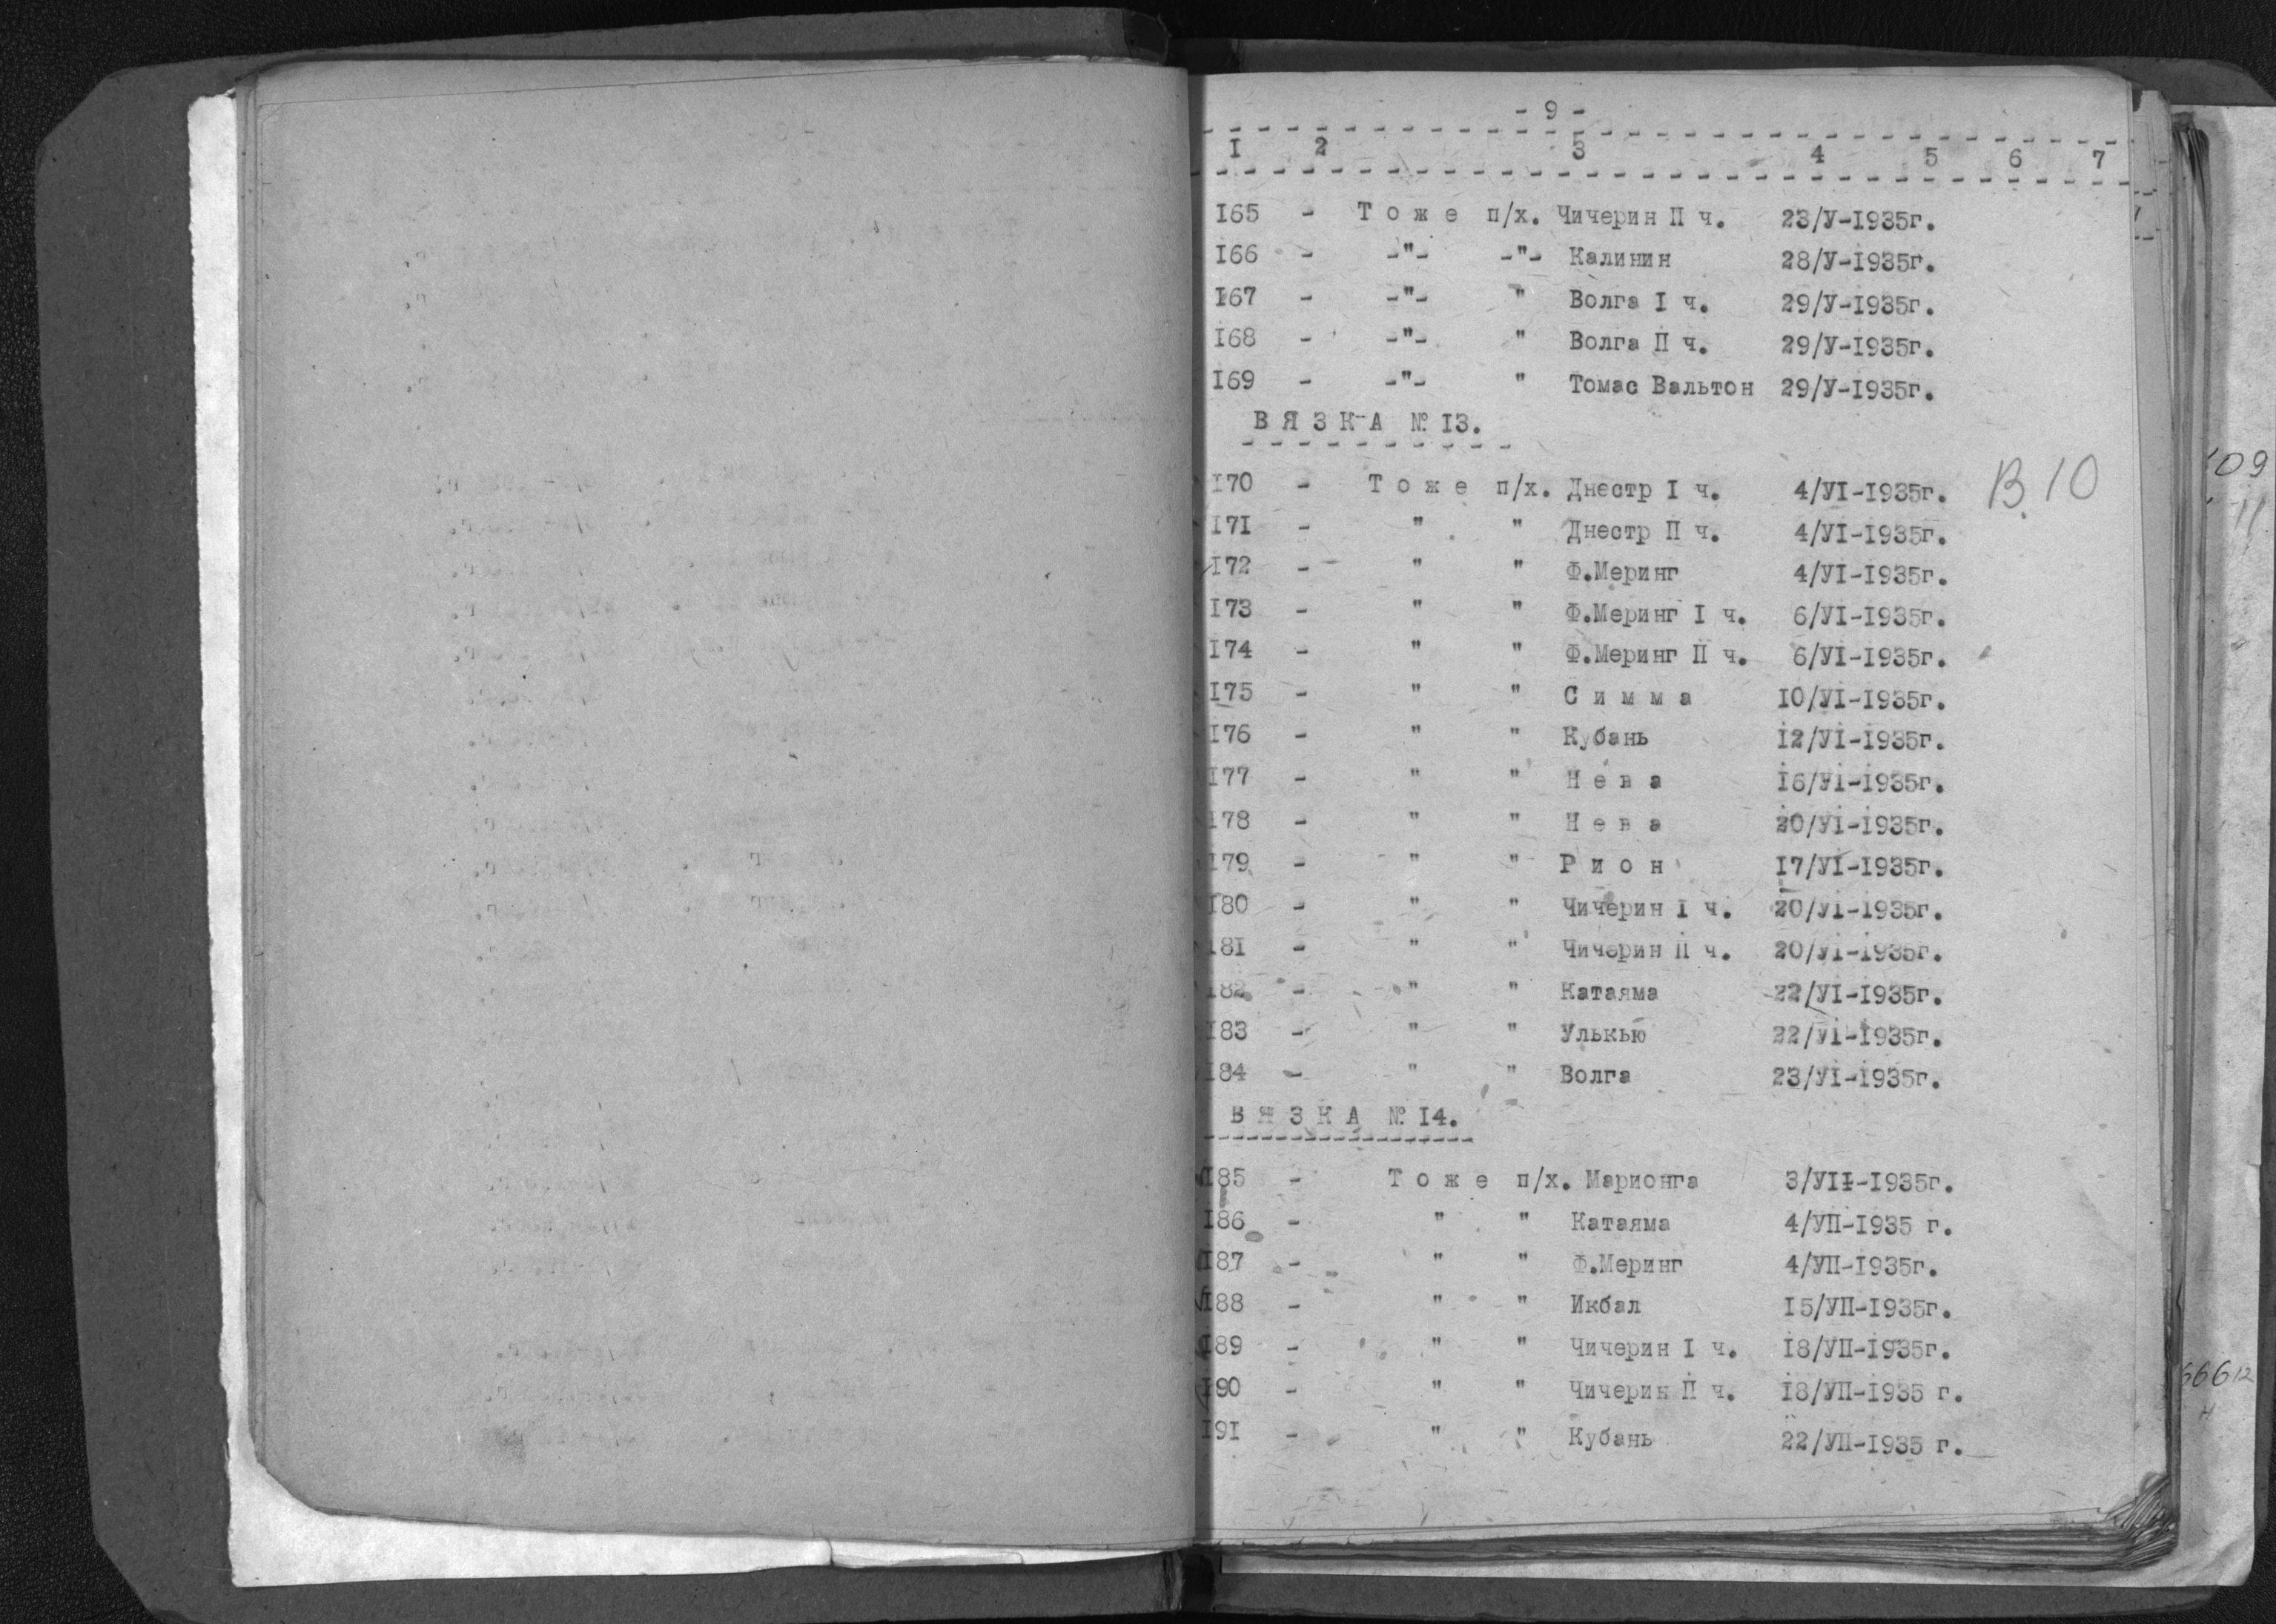 - 9 -
I 2 3 4 5 6 7
I65 - Т о ж е п/х. Чичерин П ч. 23/У-I935г.
I66 - -"- -"- Калинин 28/У-I935г.
I67 - -"- " Волга I ч. 29/У-I935г.
I68 - -"- " Волга П ч. 29/У-I935г.
I69 - -"- " Томас Вальтон 29/У-I935г.
В Я З К А № I3.
I70 - Т о ж е п/х. Днестр I ч. 4/УI-I935г. В.10
I7I - " " Днестр П ч. 4/УI-I935г.
I72 - " " Ф.Меринг 4/УI-I935г.
I73 - " " Ф.Меринг I ч. 6/УI-I935г.
I74 - " " Ф.Меринг П ч. 6/УI-I935г.
I75 - " " С и м м а IO/УI-I935г.
I76 - " " Кубань I2/УI-I935г.
I77 - " " Н е в а I6/УI-I935г.
I78 - " " Н е в а 20/УI-I935г.
I79 - " " Р и о н I7/УI-I935г.
I80 - " " Чичерин I ч. 20/УI-I935г.
I8I - " " Чичерин П ч. 20/УI-I935г.
I82 - " " Катаяма 22/УI-I935г.
I83 - " " Улькью 22/УI-I935г.
I84 - " " Волга 23/УI-I935г.
В Я З К А № I4.
I85 - Т о ж е п/х. Марионга 3/УII-I935г.
I86 - " " Катаяма 4/УП-I935 г.
I87 - " " Ф.Меринг 4/УП-I935г.
I88 - " " Икбал I5/УП-I935г.
I89 - " " Чичерин I ч. I8/УП-I935г.
I90 - " " Чичерин П ч. I8/УП-I935 г.
I9I - " " Кубань 22/УП-I935 г.